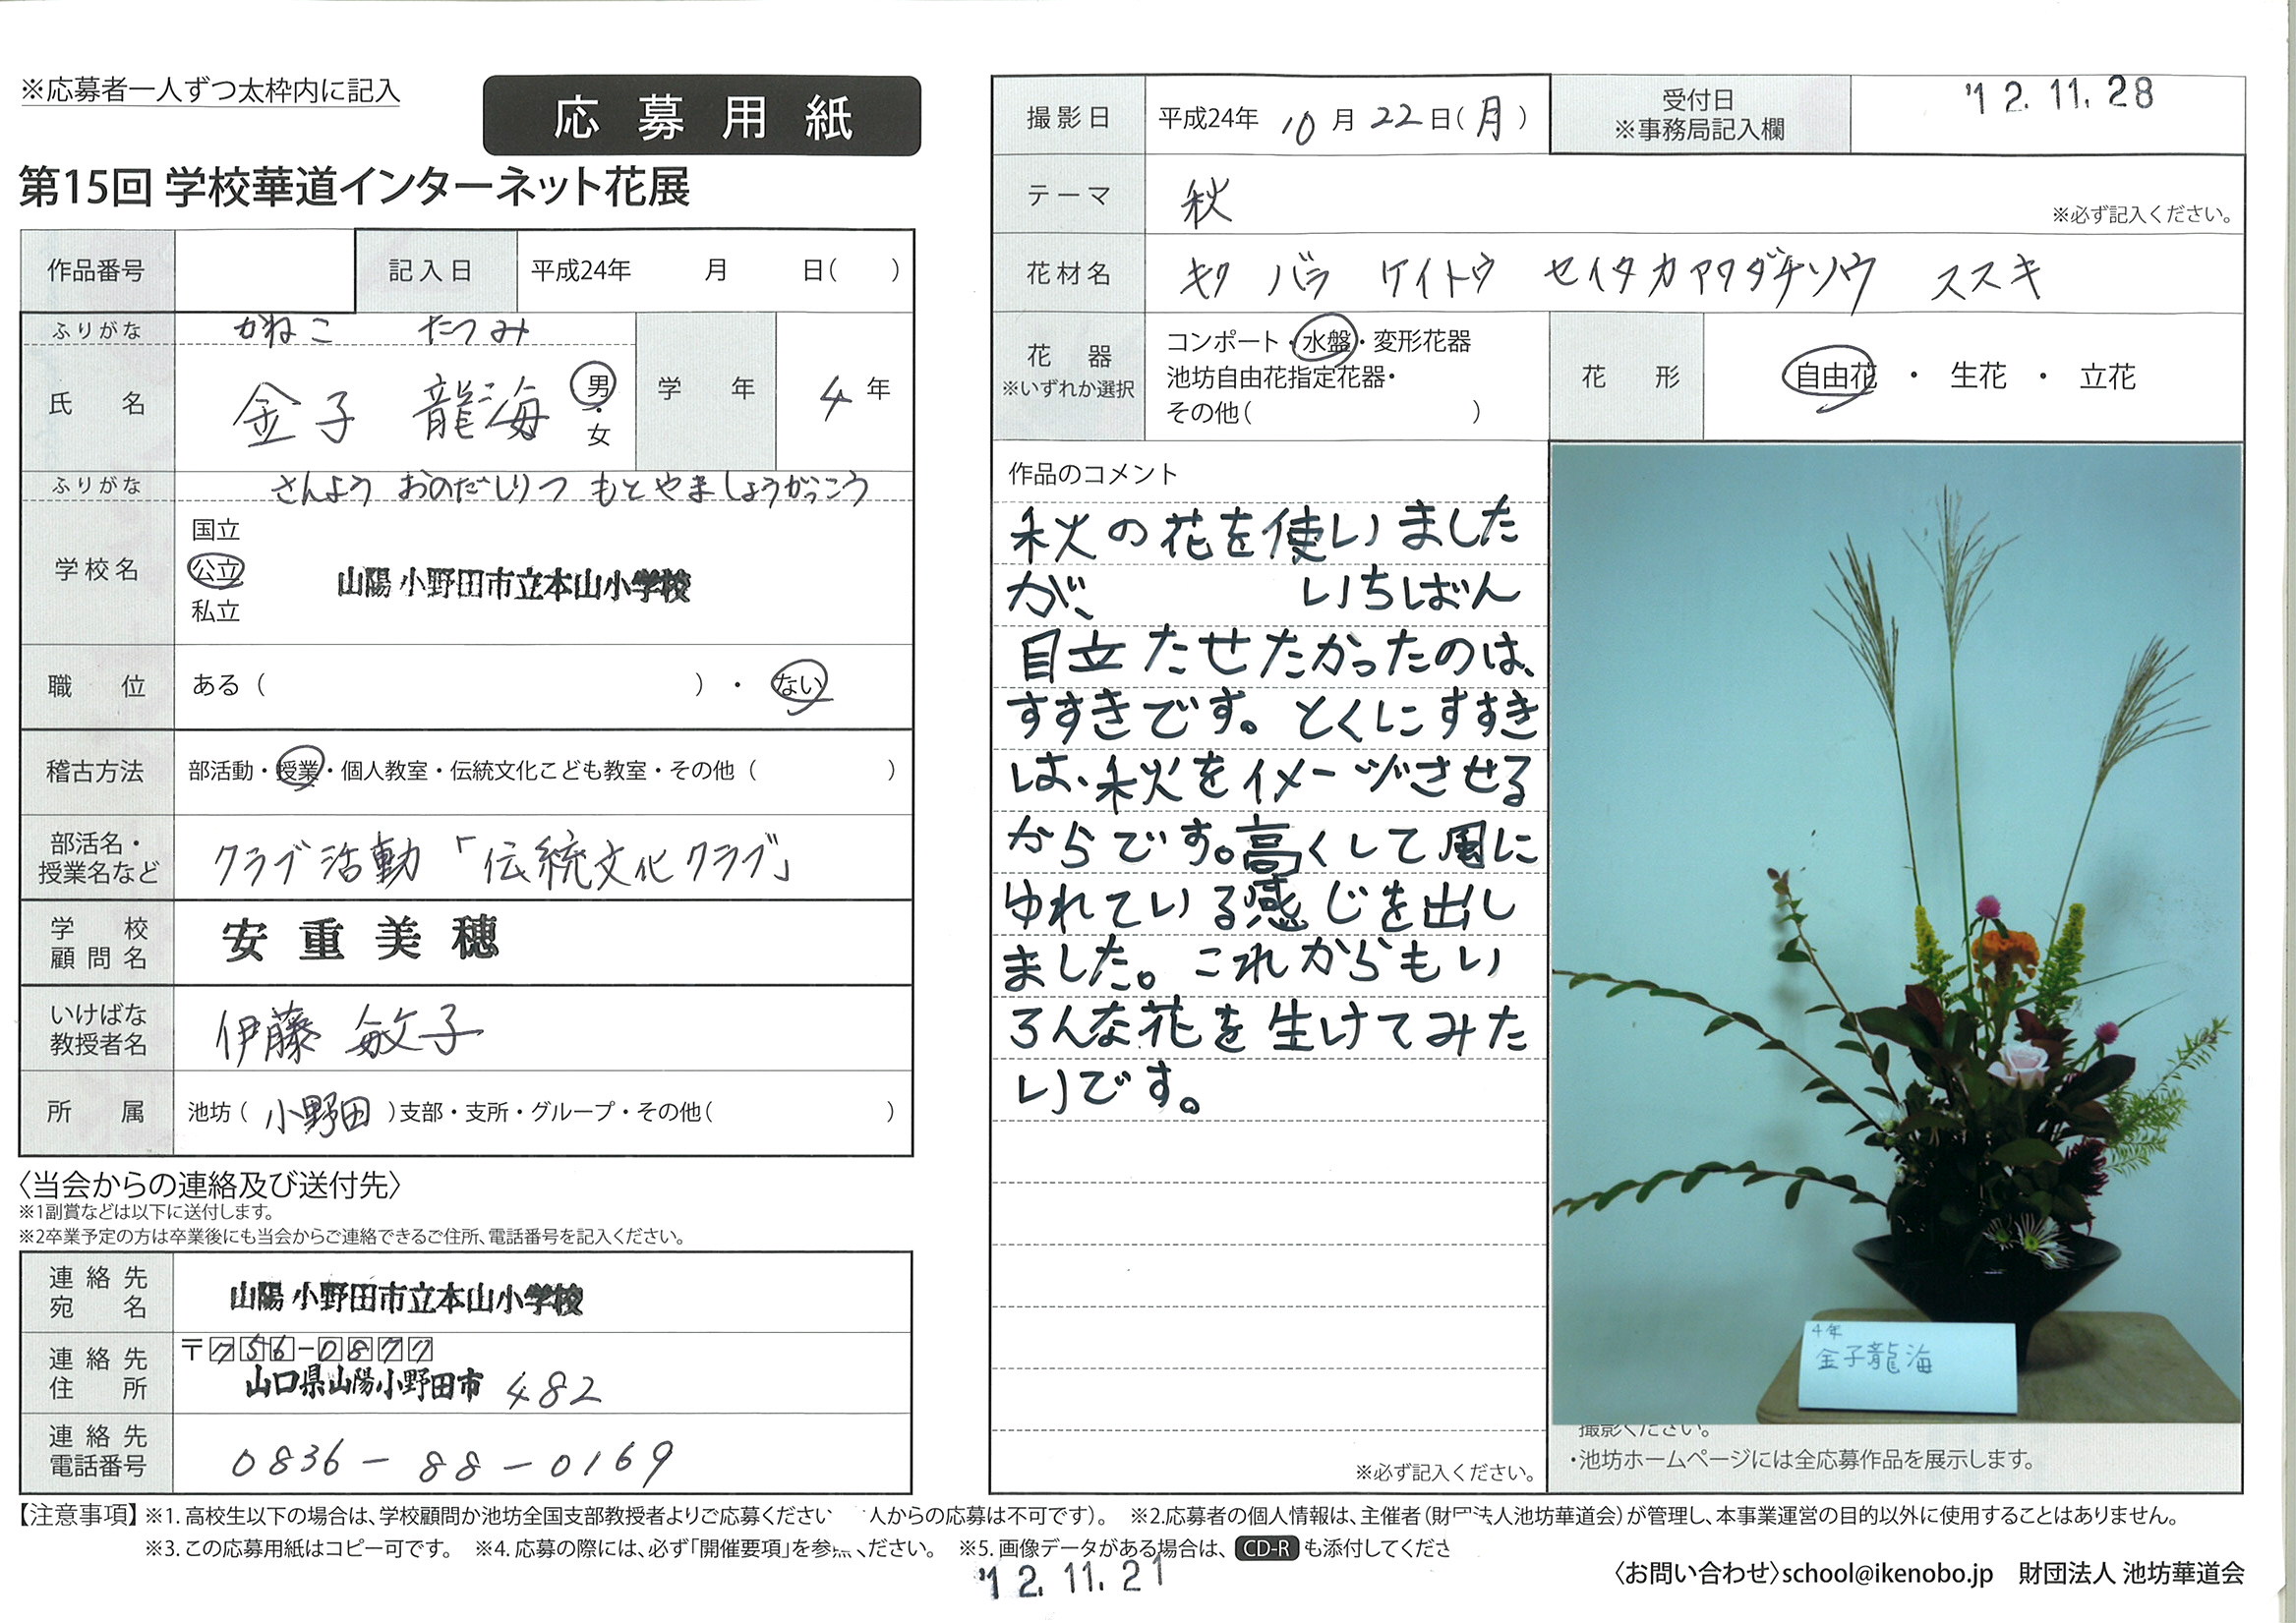 ※応募者一人ずつ太枠内に記入
応募用紙
第15回 学校華道インターネット花展
作品番号
記入日 平成24年 月 日( )
ふりがな かねこ たつみ
氏名 金子 龍海 男・女
学年 4年
ふりがな さんよう おのだしりつ もとやましょうがっこう
学校名 国立 公立 私立
山陽小野田市立本山小学校
職位 ある( )・ない
稽古方法 部活動・授業・個人教室・伝統文化こども教室・その他( )
部活名・授業名など クラブ活動「伝統文化クラブ」
学校顧問名 安重美穂
いけばな教授者名 伊藤 敏子
所属 池坊(小野田)支部・支所・グループ・その他( )
〈当会からの連絡及び送付先〉
※1副賞などは以下に送付します。
※2卒業予定の方は卒業後にも当会からご連絡できるご住所、電話番号を記入ください。
連絡先宛名 山陽小野田市立本山小学校
連絡先住所 〒756-0877
山口県山陽小野田市 482
連絡先電話番号 0836-88-0169
撮影日 平成24年 10月22日(月)
受付日 ※事務局記入欄 '12.11.28
テーマ 秋
※必ず記入ください。
花材名 キク バラ ケイトウ セイタカアワダチソウ ススキ
花器 ※いずれか選択
コンポート・水盤・変形花器
池坊自由花指定花器・
その他( )
花形 自由花・生花・立花
作品のコメント
秋の花を使いました
が、 いちばん
目立たせたかったのは、
すすきです。とくにすすき
は、秋をイメーヅさせる
からです。高くして風に
ゆれている感じを出し
ました。これからもい
ろんな花を生けてみた
いです。
※必ず記入ください。
4年
金子龍海
撮影ください。
・池坊ホームページには全応募作品を展示します。
【注意事項】※1. 高校生以下の場合は、学校顧問か池坊全国支部教授者よりご応募ください 人からの応募は不可です)。 ※2.応募者の個人情報は、主催者(財団法人池坊華道会)が管理し、本事業運営の目的以外に使用することはありません。
※3. この応募用紙はコピー可です。 ※4. 応募の際には、必ず「開催要項」を参 ください。 ※5. 画像データがある場合は、CD-Rも添付してくださ
'12.11.21
〈お問い合わせ〉school@ikenobo.jp 財団法人 池坊華道会